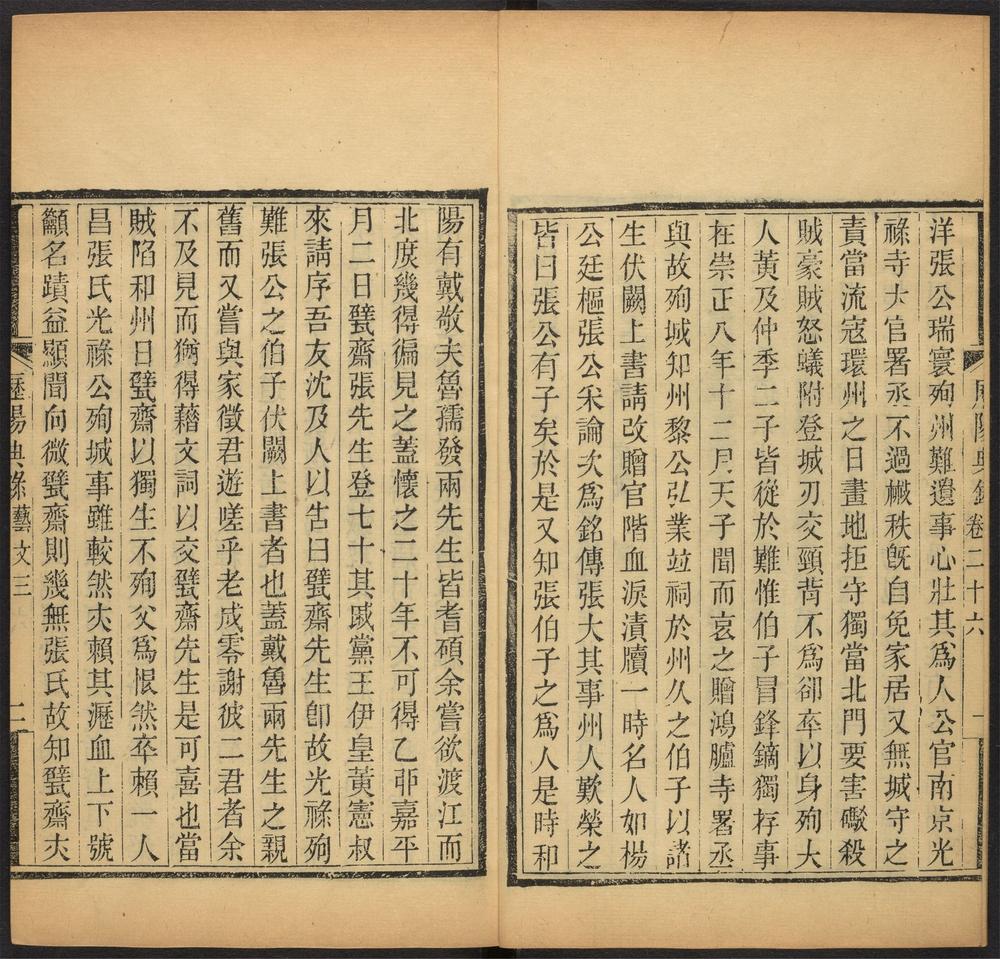 歷陽典錄 卷二十六 一
洋張公瑞寰殉州難遺事心壯其爲人公官南京光
祿寺大官署丞不過橶秩旣自免家居又無城守之
責當流寇環州之日畫地拒守獨當北門要害礮殺
賊豪賊怒蟻附登城刃交頸胷不爲卻卒以身殉大
人黃及仲季二子皆從於難惟伯子冒鋒鏑獨存事
在崇正八年十二月天子聞而哀之贈鴻臚寺署丞
與故殉城知州黎公弘業竝祠於州久之伯子以諸
生伏闕上書請改贈官階血淚漬牘一時名人如楊
公廷樞張公采論次爲銘傳張大其事州人歎榮之
皆曰張公有子矣於是又知張伯子之爲人是時和
陽有戴敬夫魯孺發兩先生皆耆碩余嘗欲渡江而
北庻幾得徧見之蓋懷之二十年不可得乙丣嘉平
月二日甓齋張先生登七十其戚黨王伊皇黃憲叔
來請序吾友沈及人以吿曰甓齋先生卽故光祿殉
難張公之伯子伏闕上書者也蓋戴魯兩先生之親
舊而又嘗與家徵君遊嗟乎老成零謝彼二君者余
不及見而猶得藉文詞以交甓齋先生是可喜也當
賊陷和州日甓齋以獨生不殉父爲恨然卒賴一人
昌張氏光祿公殉城事雖較然夫賴其瀝血上下號
籲名蹟益顯聞向微甓齋則幾無張氏故知甓齋夫
歷陽典錄 藝文三 二